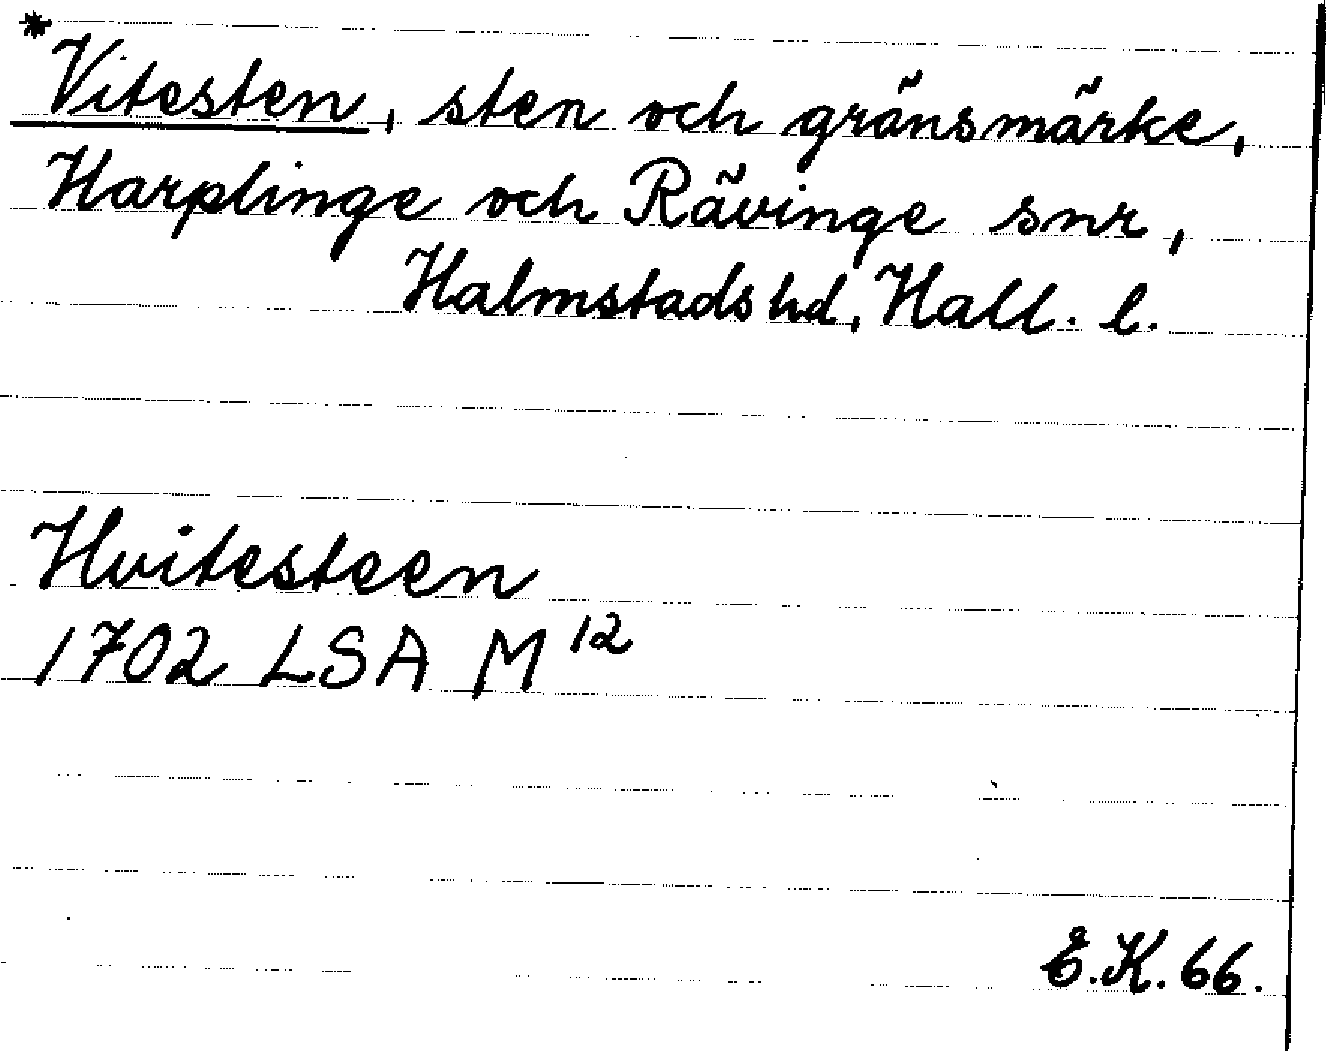 *Vitesten, sten och gränsmärke,
Harplinge och Rävinge snr,
Halmstads hd, Hall. l.
Hvitesteen
1702 LSA M 12
E.K. 66.